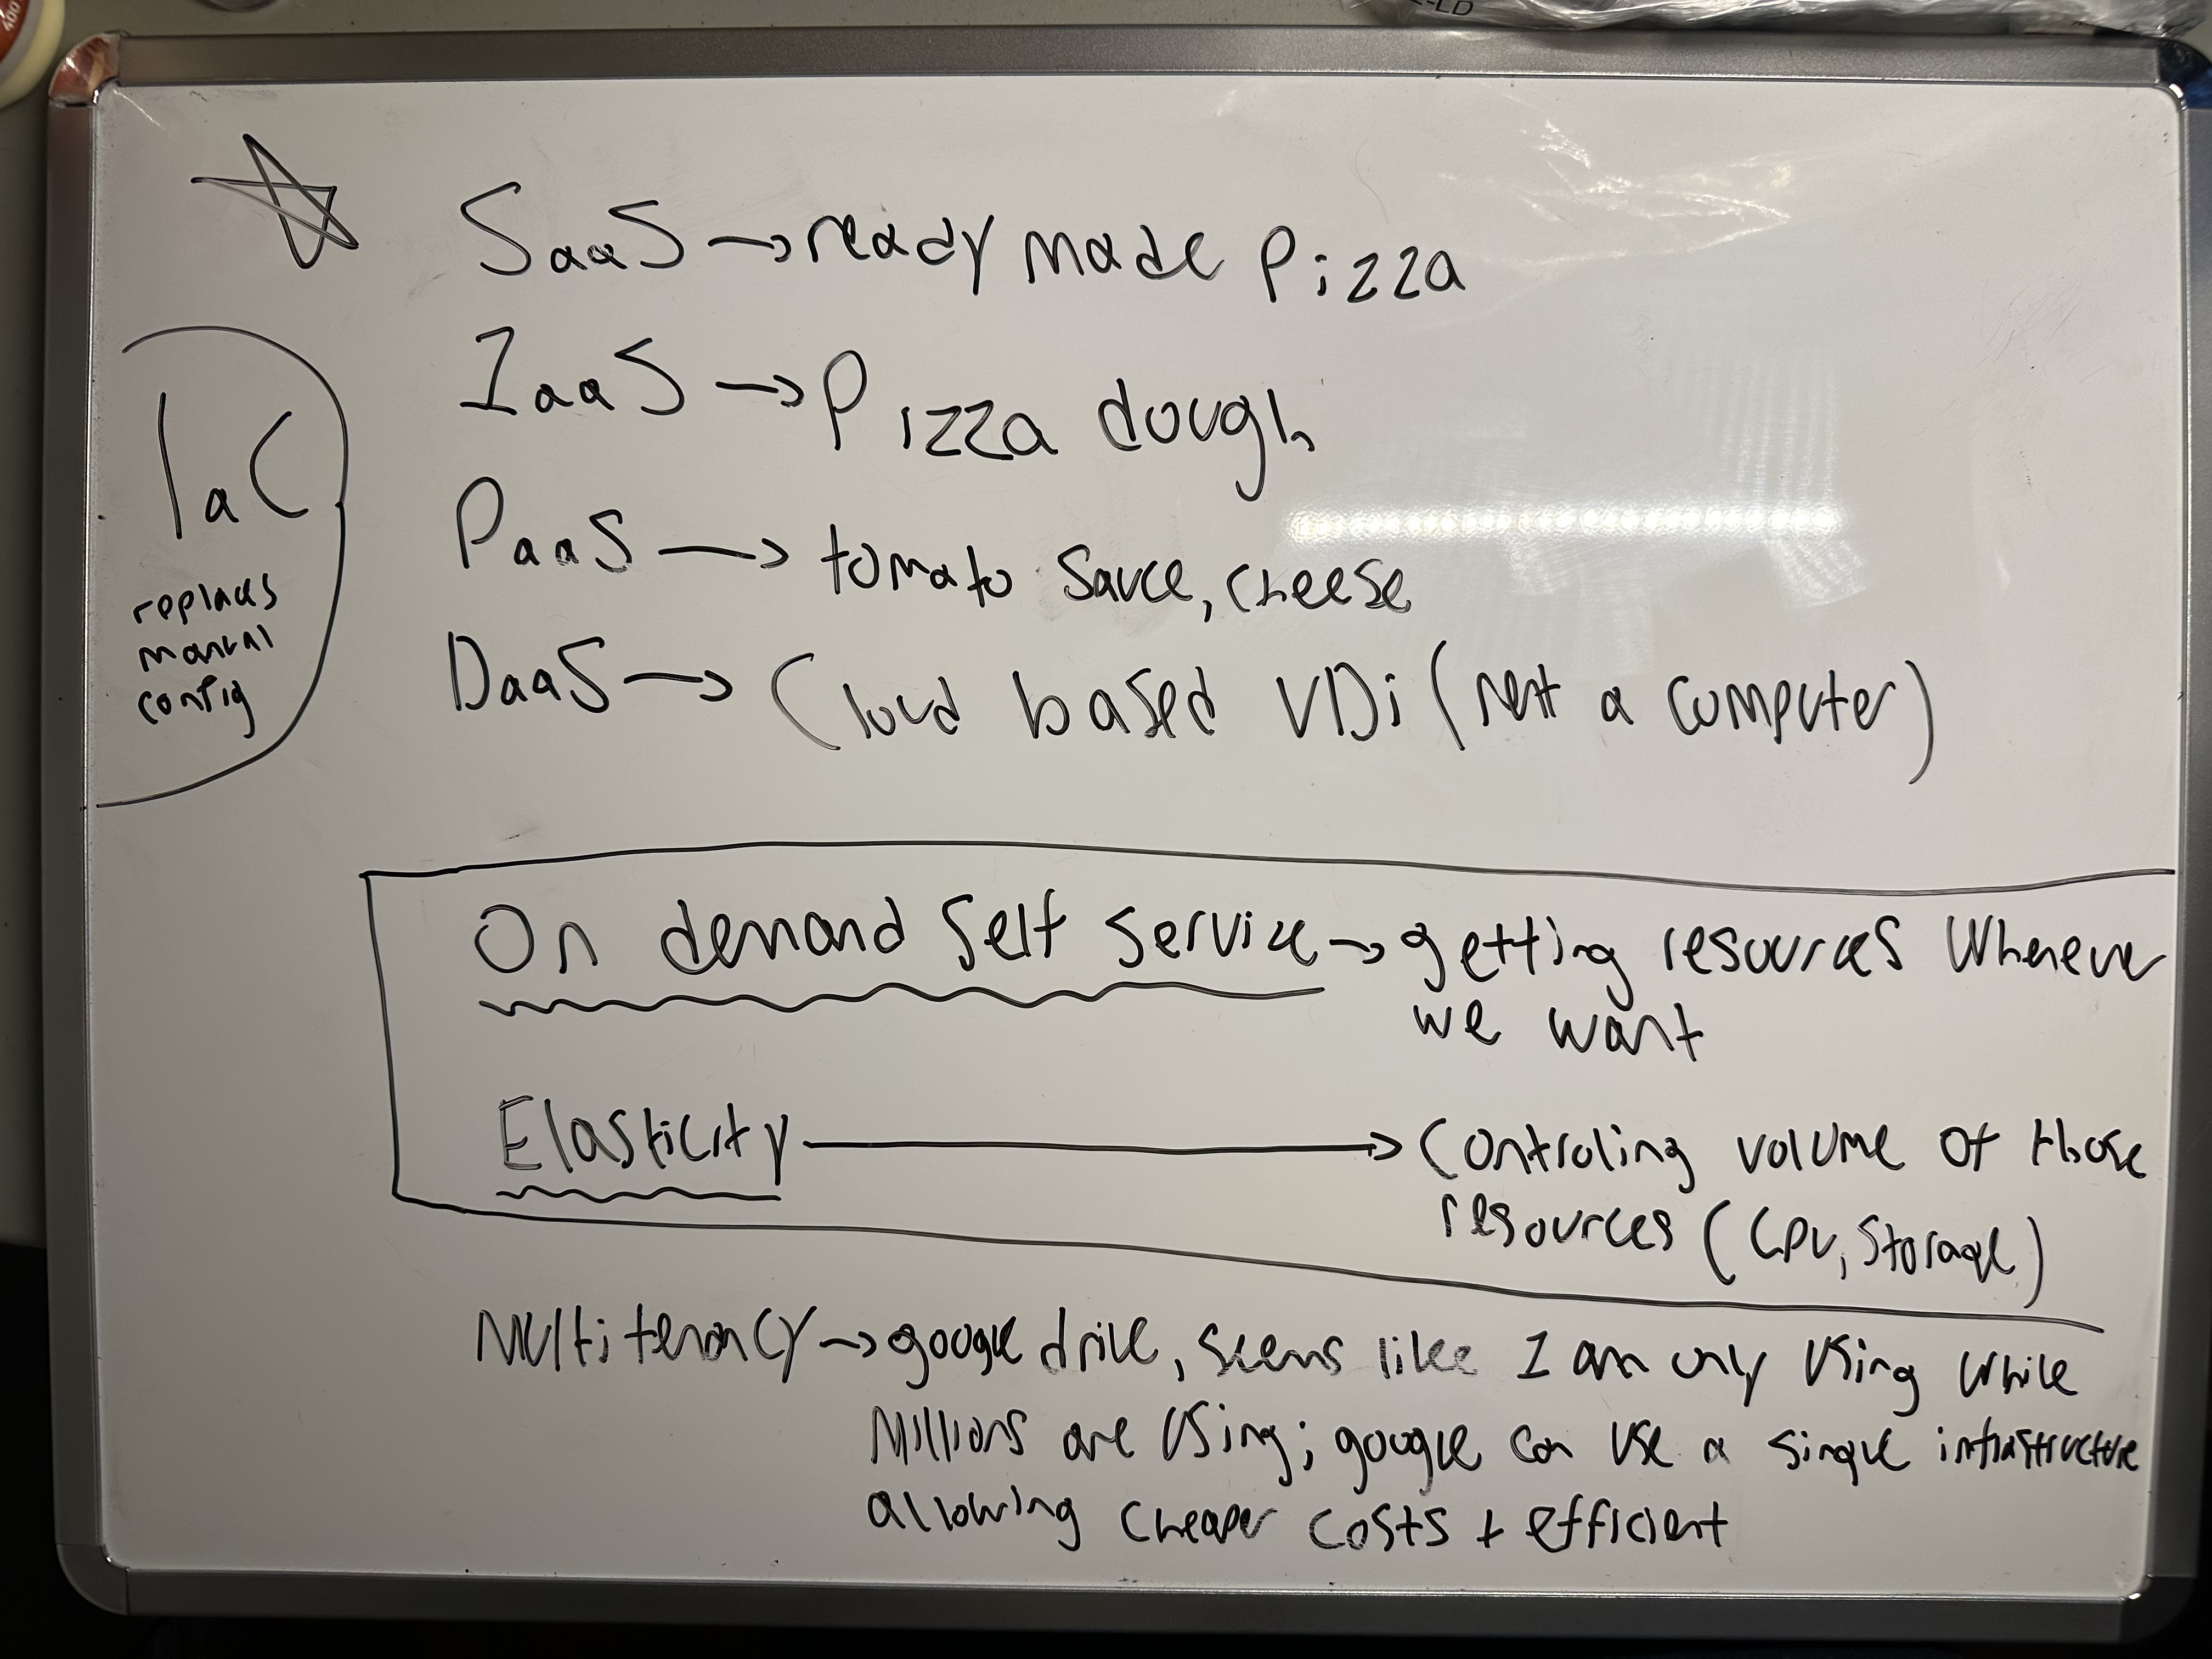 400
-LD
SaaS → ready made pizza
IaaS → Pizza dough
IaC
replaces
manual
config
PaaS → tomato sauce, cheese
DaaS → Cloud based VDi (rent a computer)
On demand self service → getting resources whenever
we want
Elasticity → Controling volume of those
resources (CPU, storage)
Multi tenancy → google drive, seems like I am only using while
Millions are using; google can use a single infrastructure
allowing cheaper costs + efficient